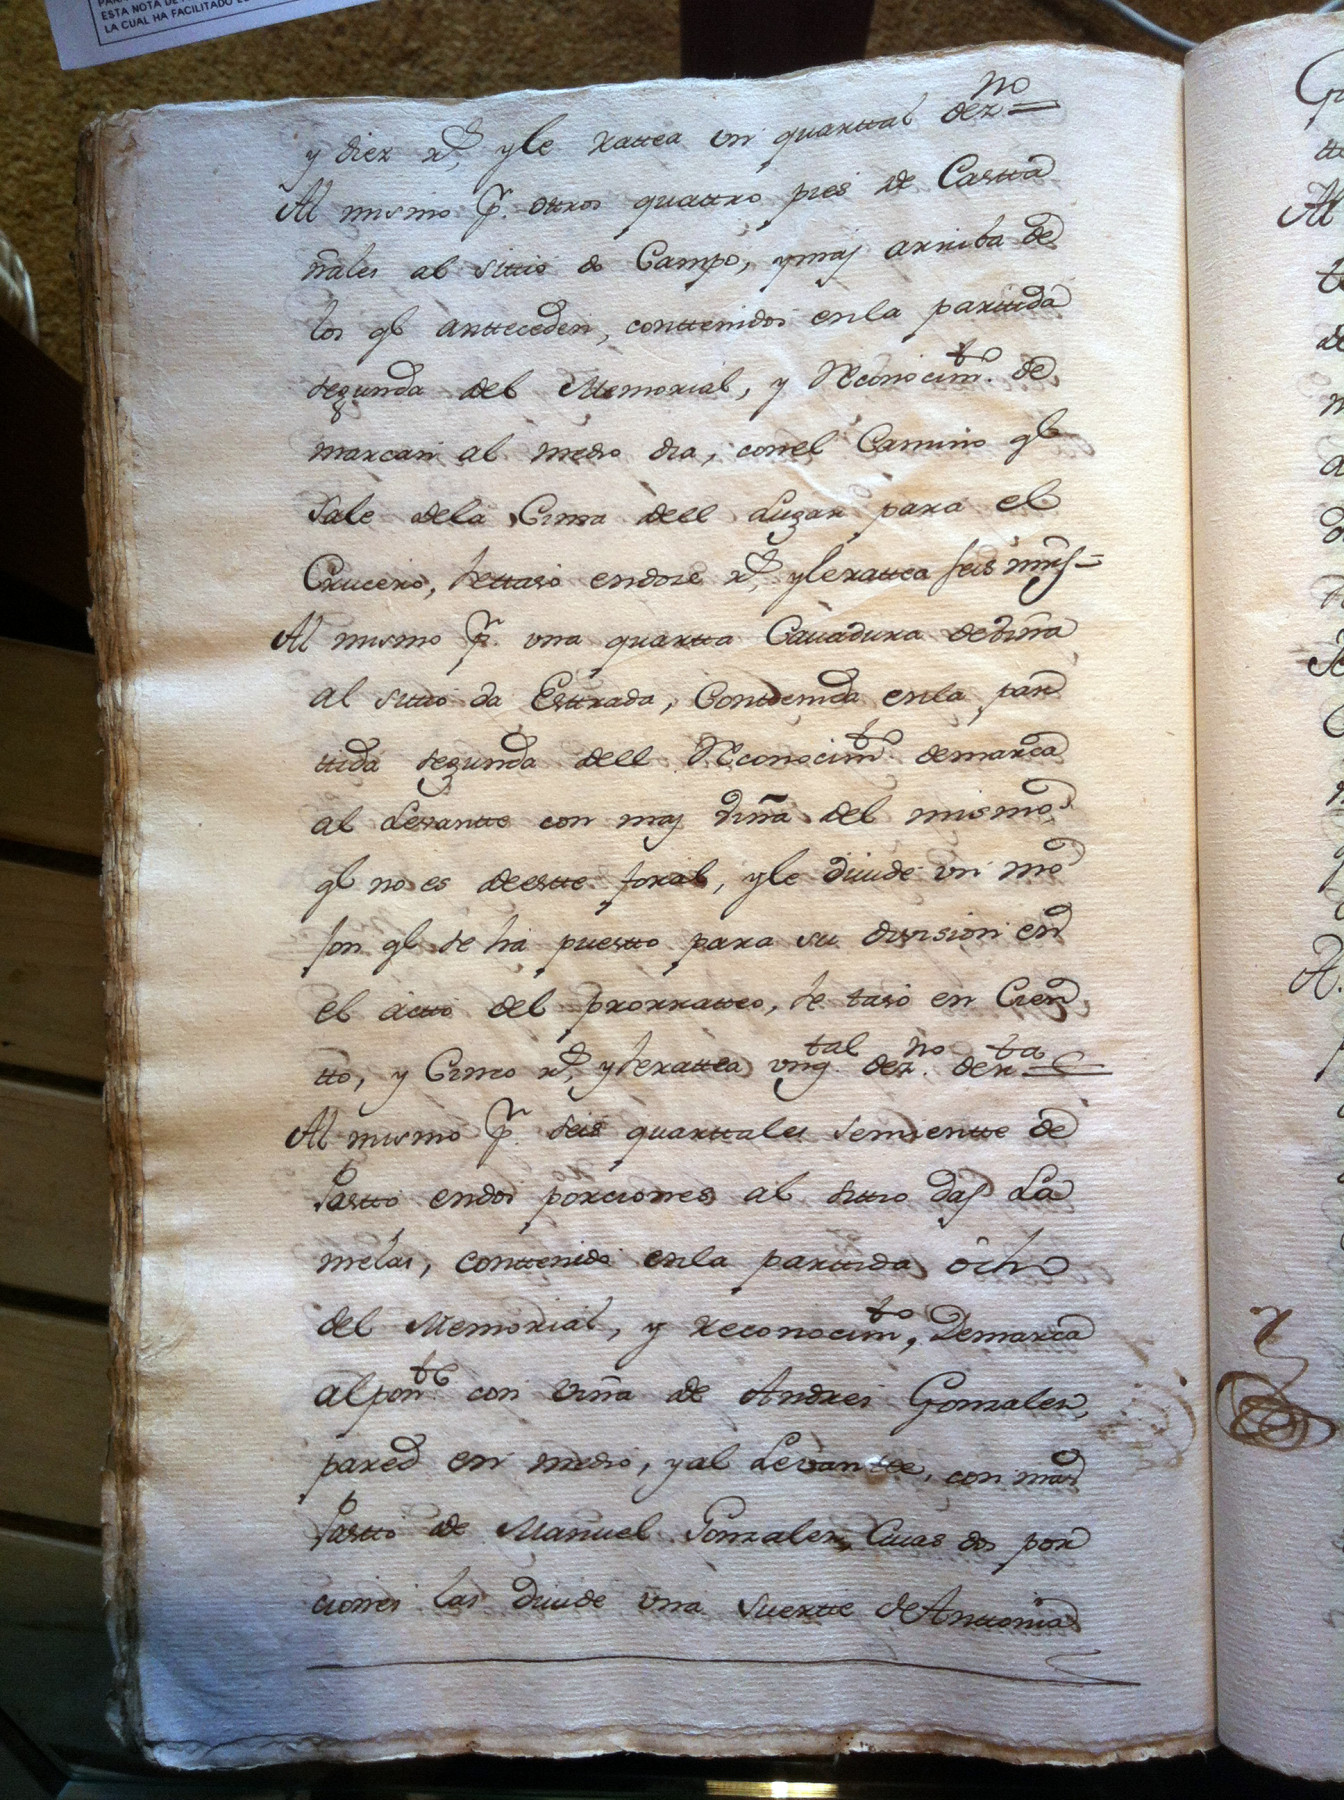 ESTA NOTA DE
LA CUAL HA FACILITADO
y diez rs, yle ratea un quarttal dezno
Al mismo Pr. ottros quattro pies de Casttta
ñales al sittio do Campo, y mas arriba de
los qe antteceden, conttenidos enla parttida
segunda del Memorial, y Rconocimto. de
marcan al medio dia, conel Camino qe
Sale dela Cima dell Lugar para el
Crucero, settasò endoze rs, yleratea seis mrs
Al mismo Pr. una quartta Cauadura deviña
al sittio da Esttrada, Conttenida enla par
ttida segunda dell Rconocimto. demarca
al Levantte con mas viña del mismo
qe no es deestte foral, yle diuide un mo
jon qe se ha puestto para su division en
el actto del prorratteo, se tasò en Cien
tto, y Cinco rs, yleratea ungtal. dezno. denta
Al mismo Pr. seis quarttales semientte de
Pastto endos porciones al sittio das La
melas, conttenido enla parttida ôcho
del Memorial, y reconocimto, Demarca
alponte con viña de Andres Gonzalez,
pared en medio, y al Levantte, con mas
Pastto de Manuel Gonzalez, Cuias dos por
ciones las diuide una suertte de Anttonia